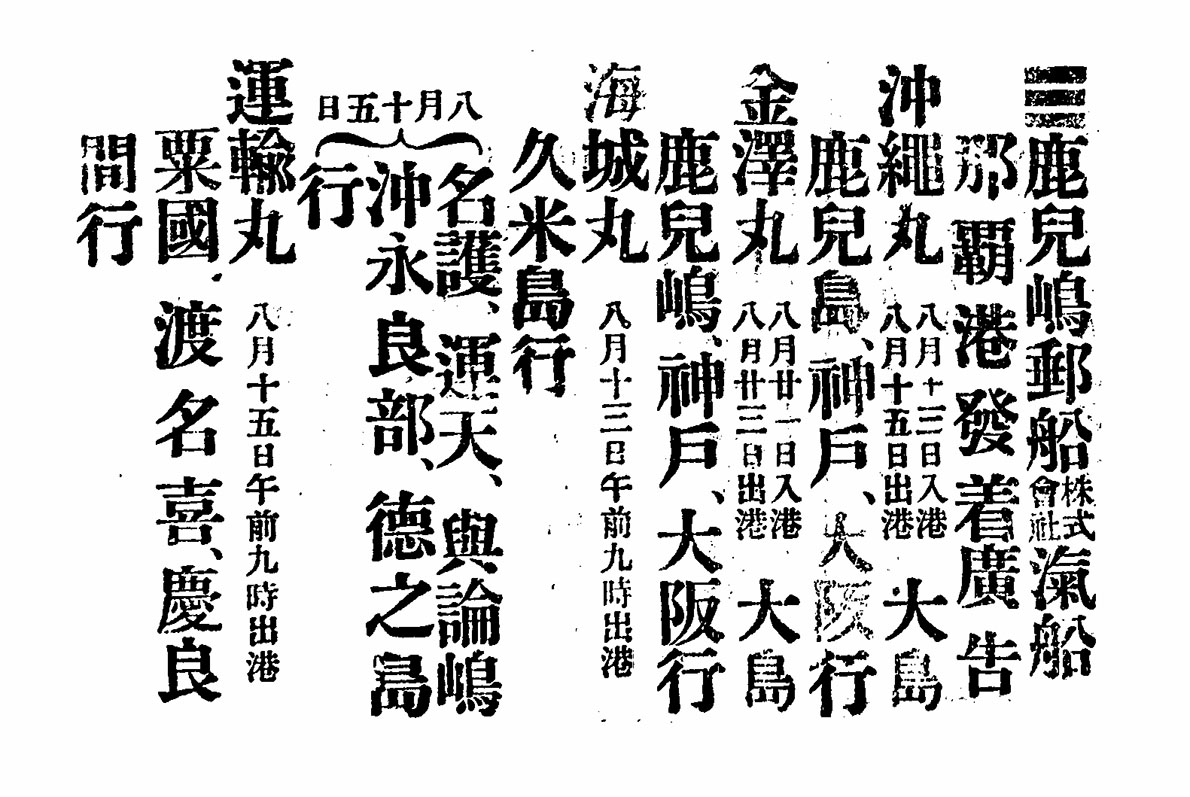 鹿兒嶋郵船株式會社滊船
那覇港發着廣告
沖繩丸 八月十三日入港 八月十五日出港 大島
鹿兒島、神戶、大阪行
金澤丸 八月廿一日入港 八月廿三日出港 大島
鹿兒嶋、神戶、大阪行
海城丸 八月十三日午前九時出港
久米島行
八月十五日
名護、運天、與論嶋
沖永良部、德之島
行
運輸丸 八月十五日午前九時出港
粟國、渡名喜、慶良
間行